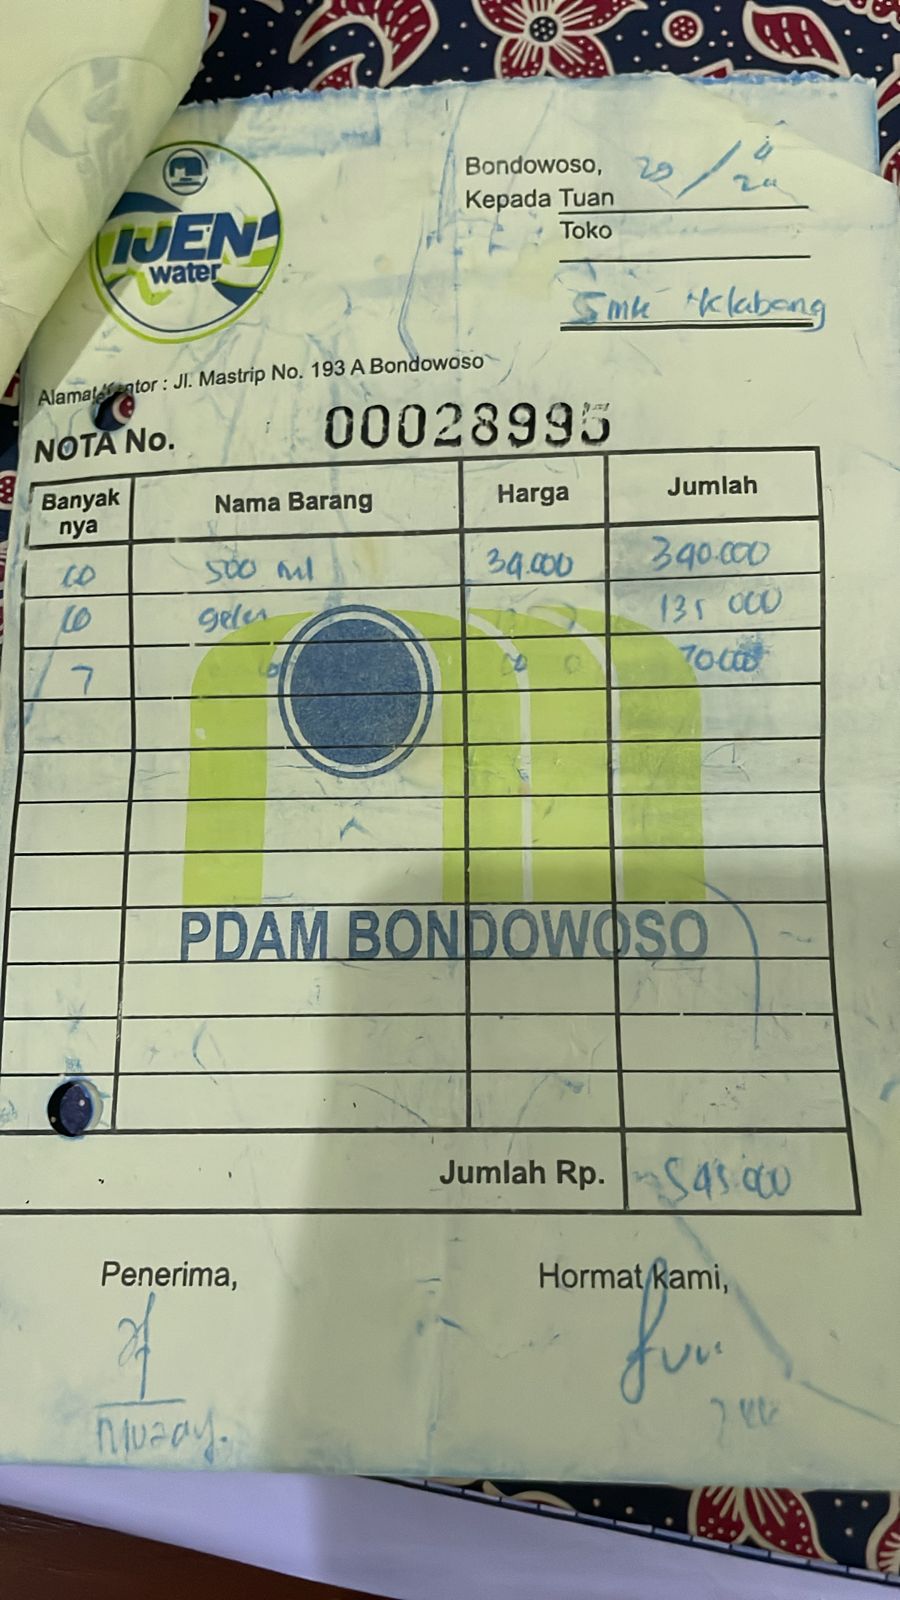 IJEN
water
Bondowoso, 20 / 4
Kepada Tuan
Toko
Smk Klabang
Kantor : Jl. Mastrip No. 193 A Bondowoso
NOTA No. 00028995
Banyak nya Nama Barang Harga Jumlah
10 500 ml 34.000 340.000
10 gelas 135 000
7 70.000
PDAM BONDOWOSO
Jumlah Rp. 545.000
Penerima, Hormat kami,